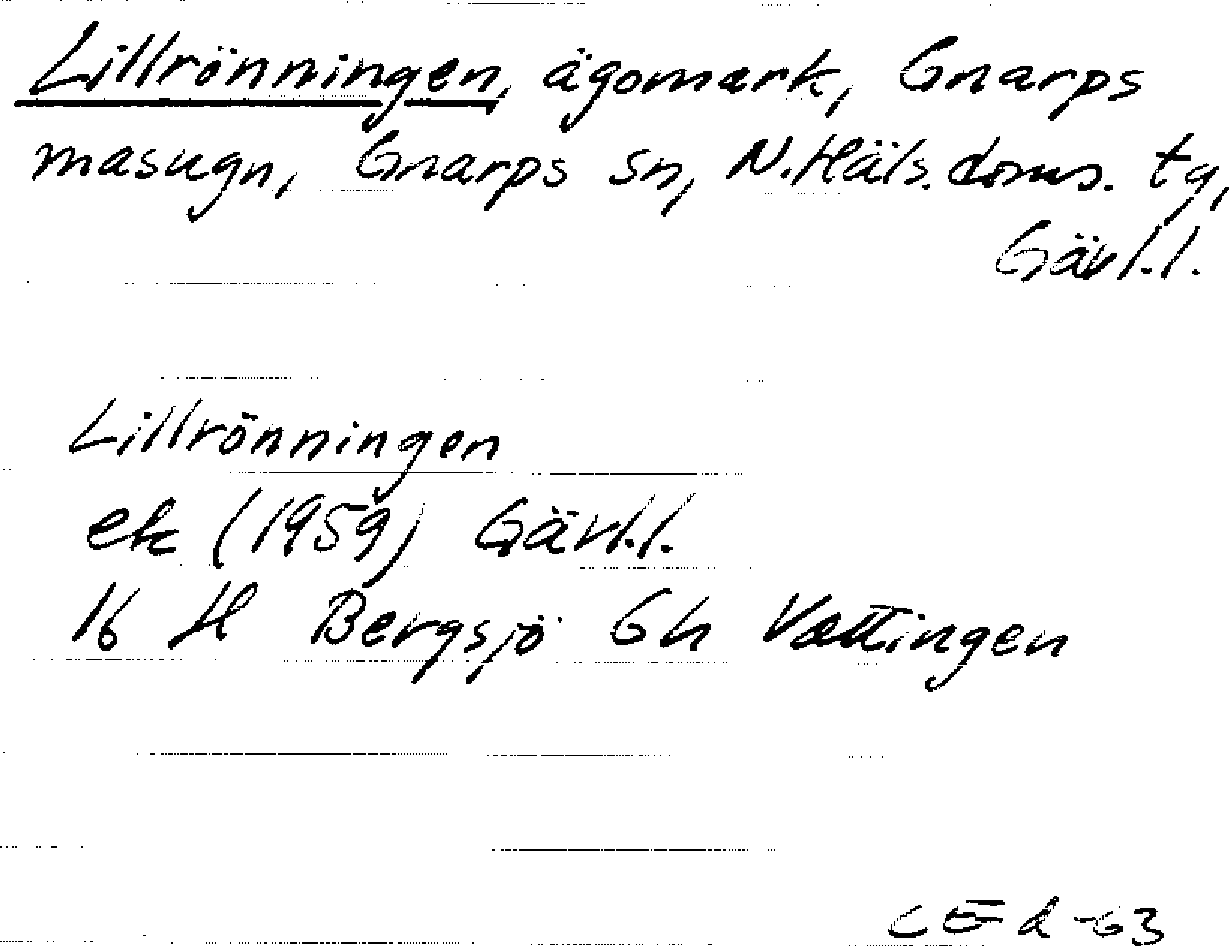 Lillrönningen, ägomark, Gnarps
masugn, Gnarps sn, N. Häls. doms. tg,
Gävl.l.
Lillrönningen
ek (1959) Gävl.l.
16 H Bergsjö 6h Vattingen
CEd -63